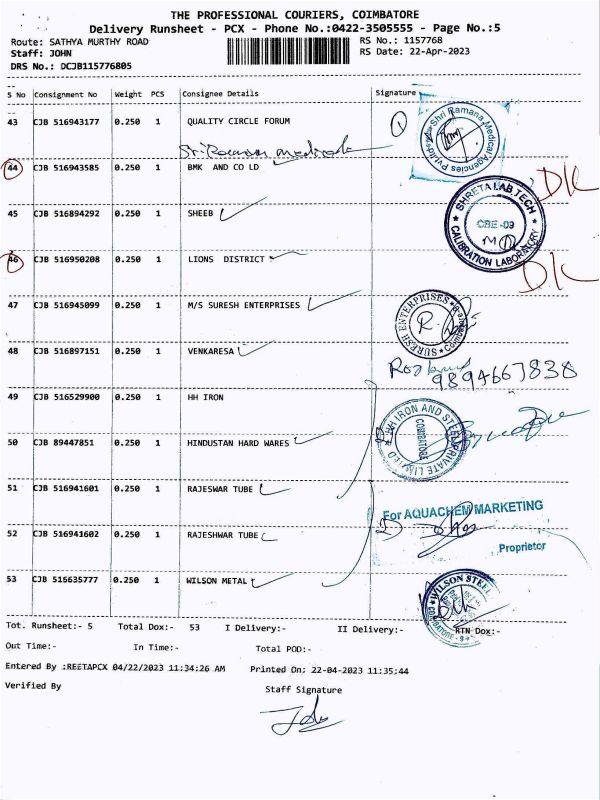 THE PROFESSIONAL COURIERS, COIMBATORE
Delivery Runsheet - PCX - Phone No.:0422-3505555 - Page No.:5
Route: SATHYA MURTHY ROAD
RS No.: 1157768
Staff: JOHN
RS Date: 22-Apr-2023
DRS No.: DCJB115776805
S No Consignment No Weight PCS Consignee Details Signature
43 CJB 516943177 0.250 1 QUALITY CIRCLE FORUM
Shri Ramana Medical Agencies Pvt.Ltd
44 CJB 516943585 0.250 1 BMK AND CO LD
D/L
45 CJB 516894292 0.250 1 SHEEB
SHRETA LAB TECH
CBE-09
CALIBRATION LABORATORY
46 CJB 516950208 0.250 1 LIONS DISTRICT
D/L
47 CJB 516945099 0.250 1 M/S SURESH ENTERPRISES
SURESH ENTERPRISES
48 CJB 516897151 0.250 1 VENKARESA
9894667838
49 CJB 516529900 0.250 1 HH IRON
HH IRON AND STEEL PRIVATE LIMITED
COIMBATORE
50 CJB 89447851 0.250 1 HINDUSTAN HARD WARES
51 CJB 516941601 0.250 1 RAJESWAR TUBE
For AQUACHEM MARKETING
52 CJB 516941602 0.250 1 RAJESHWAR TUBE
Proprietor
53 CJB 516635777 0.250 1 WILSON METAL
WILSON STEEL
COIMBATORE - 9
Tot. Runsheet:- 5 Total Dox:- 53 I Delivery:- II Delivery:- RTN Dox:-
Out Time:- In Time:- Total POD:-
Entered By :REETAPCX 04/22/2023 11:34:26 AM Printed On: 22-04-2023 11:35:44
Verified By
Staff Signature